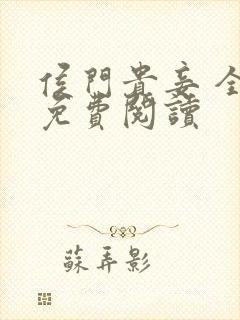 侯門貴妾 全
免費閱讀
蘇弄影